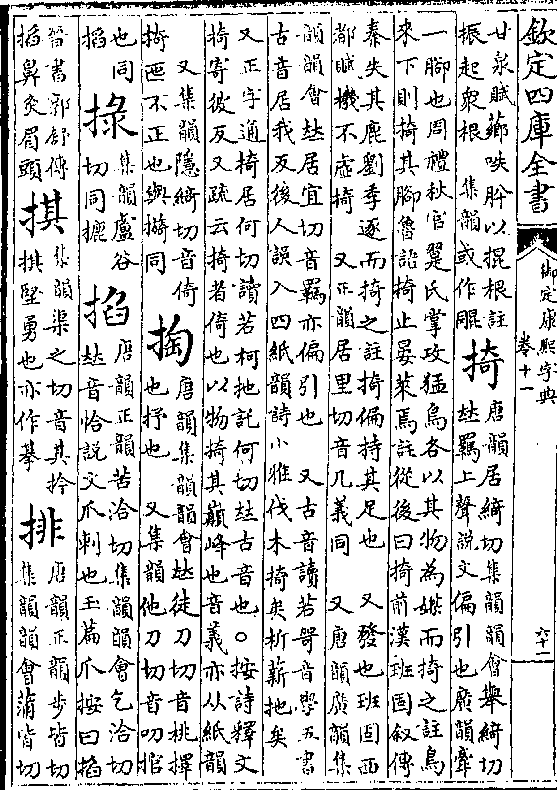 欽定四庫全書
御定康熙字典
卷十一
六十二
甘泉賦薌呹肸以掍根註
振起衆根 集韻或作
掎
唐韻居綺切集韻韻會舉綺切
𠀤羈上聲說文偏引也廣韻牽
一腳也周禮秋官翨氏掌攻猛鳥各以其物為媒而掎之註鳥
來下則掎其腳魯語掎止晏萊焉註從後曰掎前漢班固叙傳
秦失其鹿劉季逐而掎之註掎偏持其足也 又發也班固西
都賦機不虛掎 又正韻居里切音几義同 又唐韻廣韻集
韻韻會𠀤居宜切音羈亦偏引也 又古音讀若哿音學五書
古音居我反後人誤入四紙韻詩小雅伐木掎矣析薪扡矣
又正字通掎居何切讀若柯扡託何切𠀤古音也○按詩釋文
掎寄彼反又疏云掎者倚也以物掎其巔峰也音義亦从紙韻
又集韻隱綺切音倚
掎 不正也與㩻同
掏
唐韻集韻韻會𠀤徒刀切音桃擇
也抒也 又集韻他刀切音叨捾
也同
搯
掾
集韻盧谷
切同摝
掐
唐韻正韻苦洽切集韻韻會乞洽切
𠀤音恰說文爪刺也玉篇爪按曰掐
晉書郭舒傳
掐鼻灸眉頭
掑
集韻渠之切音其拎
掑堅勇也亦作㨳
排
唐韻正韻步皆切
集韻韻會蒲皆切